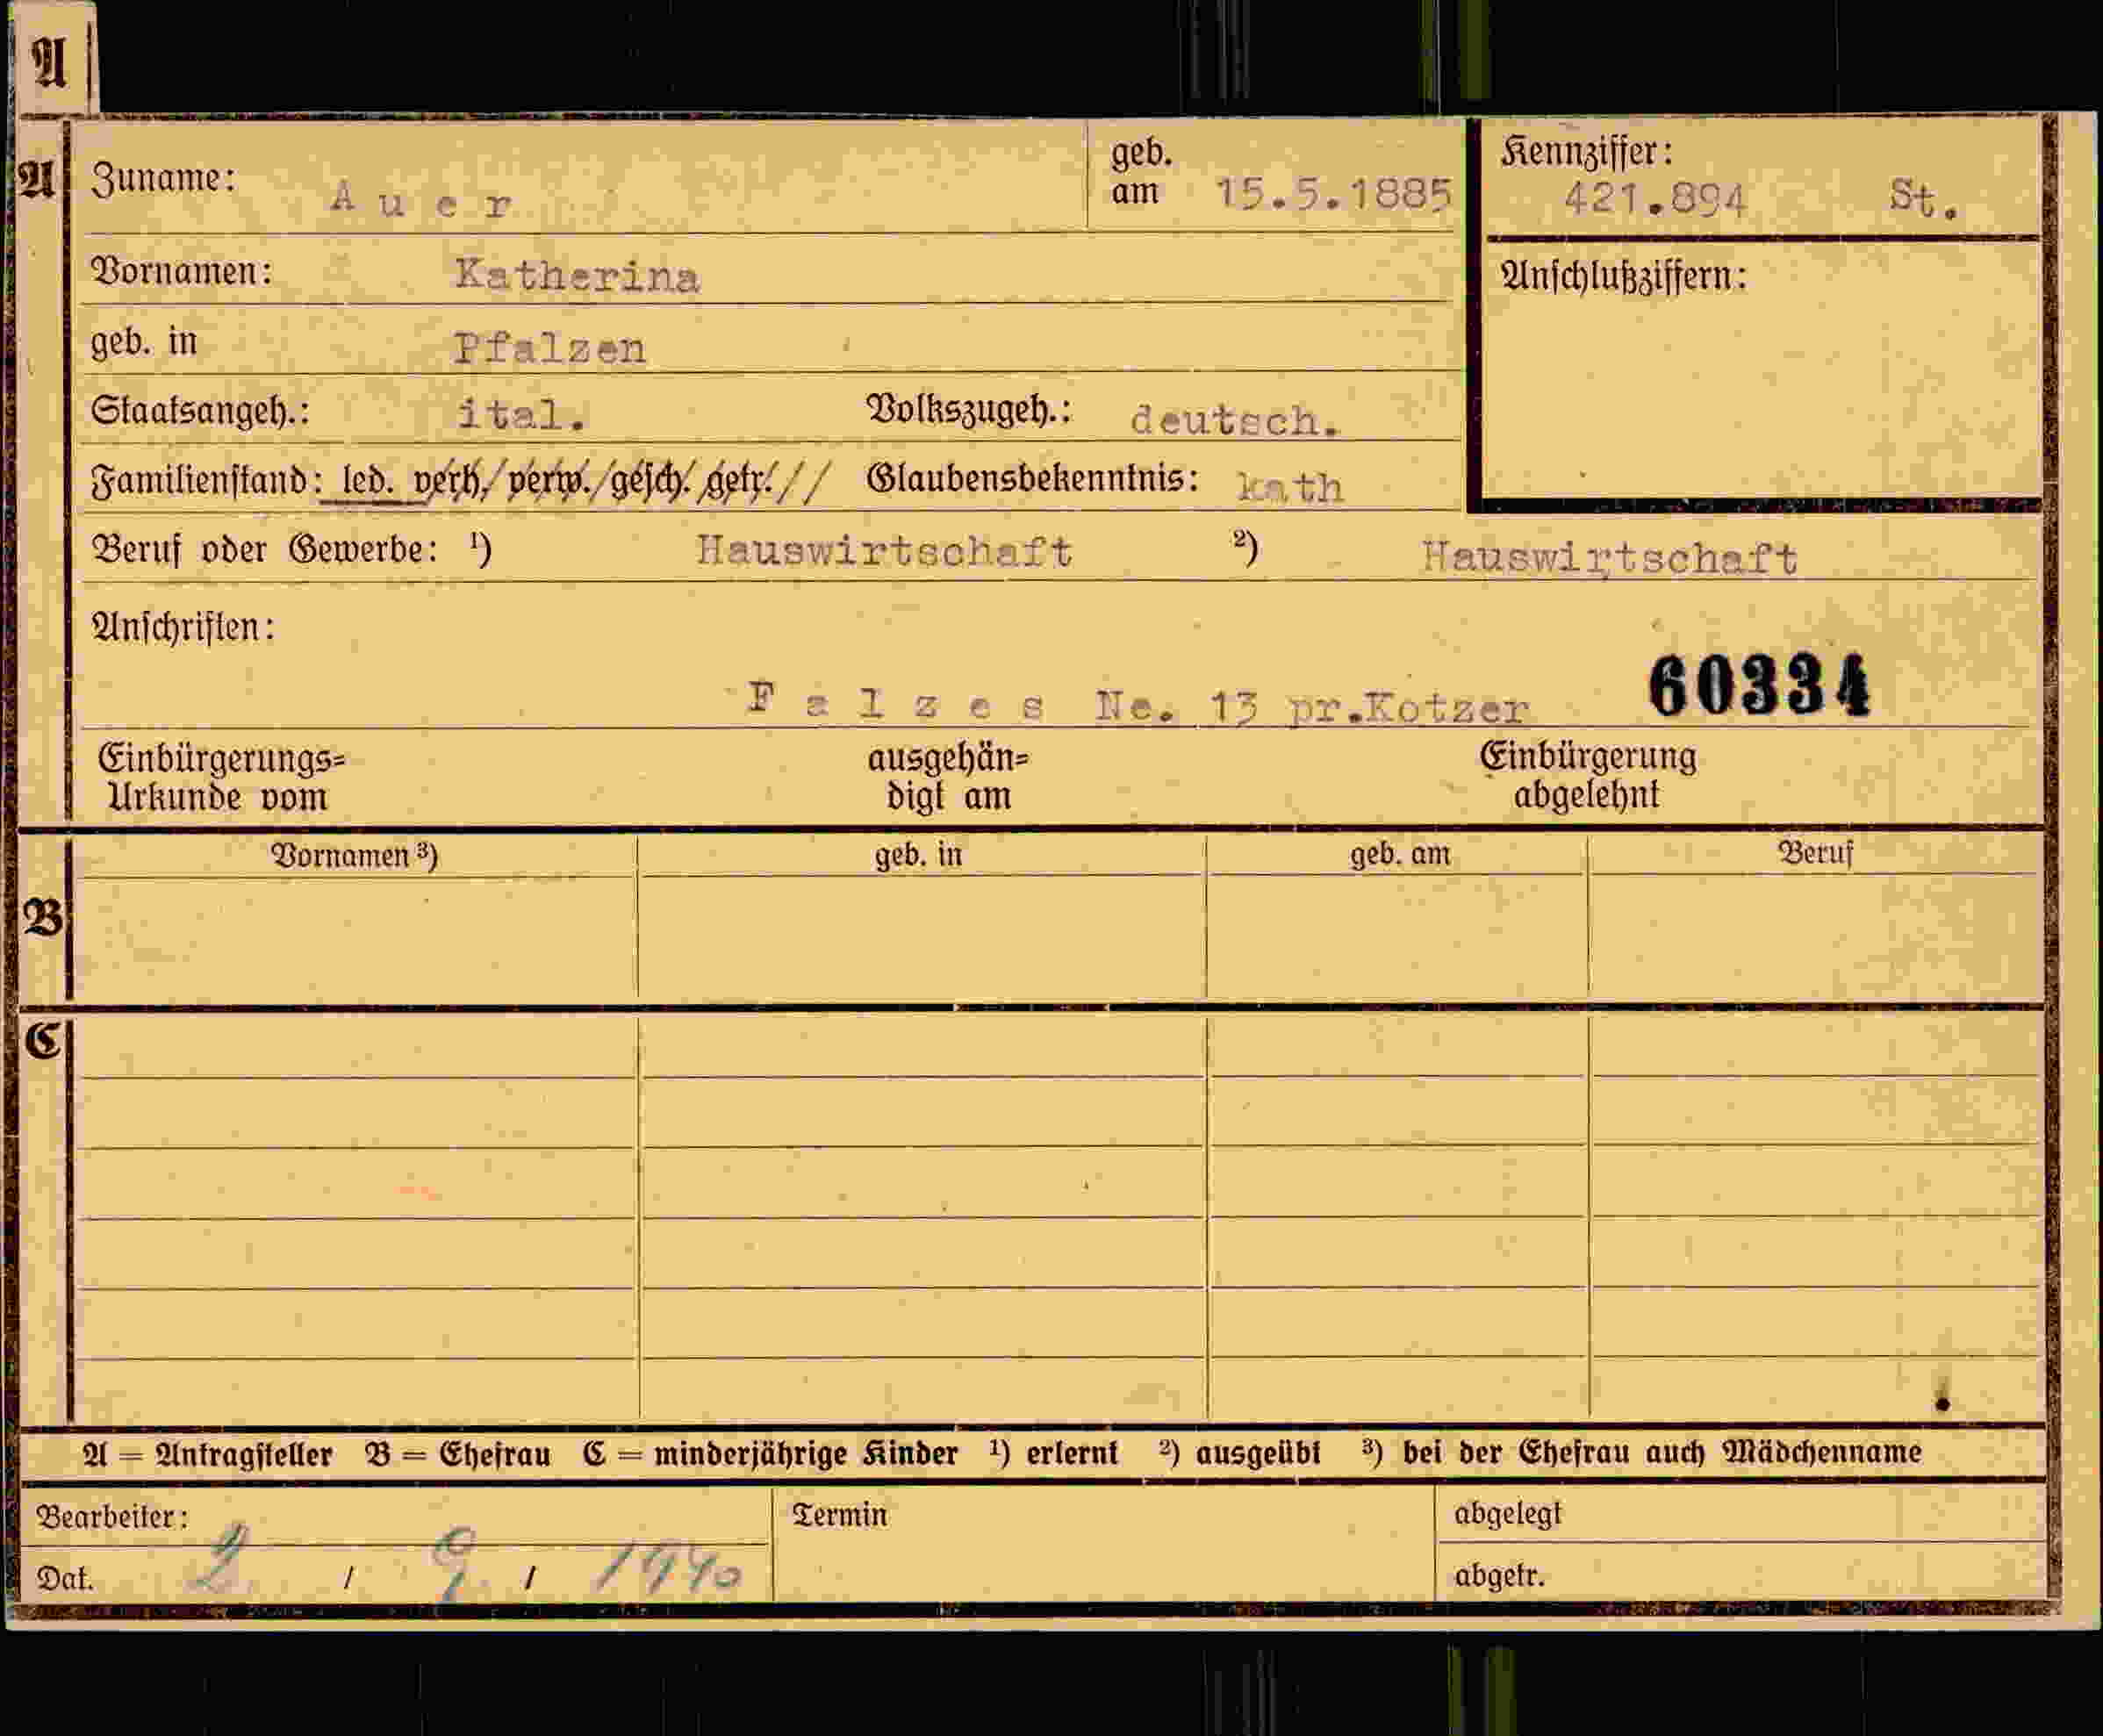 A
A
Zuname: Auer geb. am 15.5.1885 Kennziffer: 421.894 St.
Vornamen: Katherina Anschlußziffern:
geb. in Pfalzen
Staatsangeh.: ital. Volkszugeh.: deutsch.
Familienstand: led. verh./verw./gesch. getr.// Glaubensbekenntnis: kath
Beruf oder Gewerbe: ¹) Hauswirtschaft ²) Hauswirtschaft
Anschriften:
F a l z e s Ne. 13 pr.Kotzer 60334
Einbürgerungs=
Urkunde vom
ausgehän=
digt am
Einbürgerung
abgelehnt
B
Vornamen ³) geb. in geb. am Beruf
C
A = Antragsteller B = Ehefrau C = minderjährige Kinder ¹) erlernt ²) ausgeübt ³) bei der Ehefrau auch Mädchenname
Bearbeiter: Termin abgelegt
Dat. 2. / 9. / 1940 abgetr.